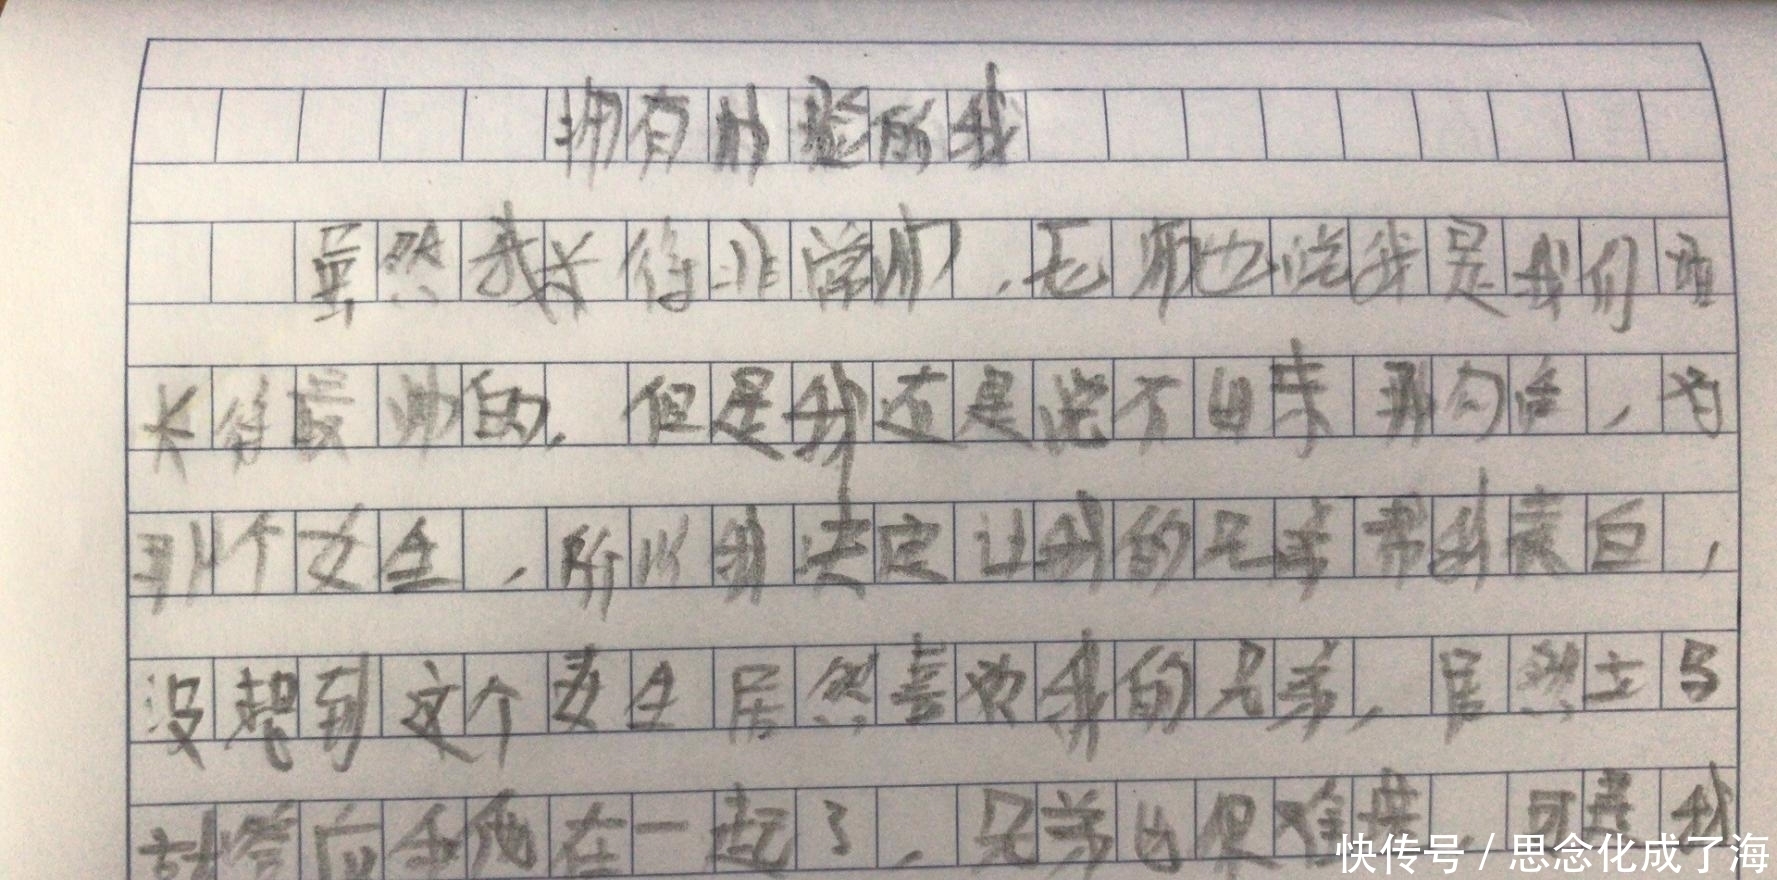 拥有 所我
虽然我长得非常帅,老师也说我是我们
长得最帅的,但是我还是说不出来那句,
那个女生,所以我决定让我的兄弟帮我表白,
没想到这个女生居然喜欢我的兄弟,居然立马
就答应和他在一起了,兄弟也很难受,可是我
快传号 / 思念化成了海